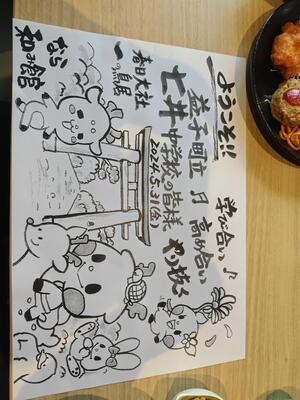 ようこそ!!
学び合い♪
高め合い
やり抜く
益子町立
七井中学校の皆様
2024.5.31(金)
春日大社
一の鳥居
なら
和み館